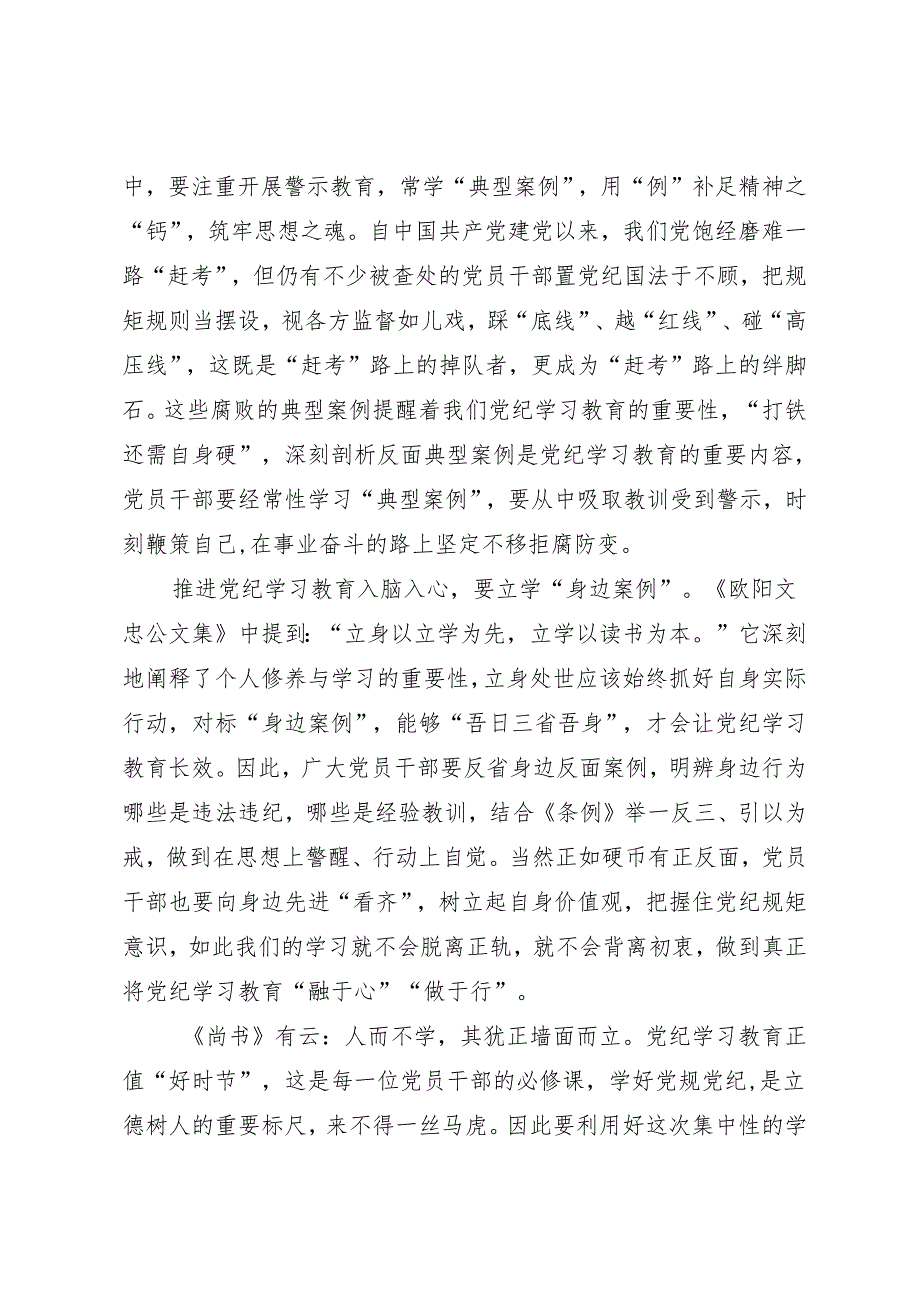 中，要注重开展警示教育，常学“典型案例”，用“例”补足精神之
“钙”，筑牢思想之魂。自中国共产党建党以来，我们党饱经磨难一
路“赶考”，但仍有不少被查处的党员干部置党纪国法于不顾，把规
矩规则当摆设，视各方监督如儿戏，踩“底线”、越“红线”、碰“高
压线”，这既是“赶考”路上的掉队者，更成为“赶考”路上的绊脚
石。这些腐败的典型案例提醒着我们党纪学习教育的重要性，“打铁
还需自身硬”，深刻剖析反面典型案例是党纪学习教育的重要内容，
党员干部要经常性学习“典型案例”，要从中吸取教训受到警示，时
刻鞭策自己,在事业奋斗的路上坚定不移拒腐防变。
推进党纪学习教育入脑入心，要立学“身边案例”。《欧阳文
忠公文集》中提到：“立身以立学为先，立学以读书为本。”它深刻
地阐释了个人修养与学习的重要性,立身处世应该始终抓好自身实际
行动，对标“身边案例”，能够“吾日三省吾身”，才会让党纪学习
教育长效。因此，广大党员干部要反省身边反面案例，明辨身边行为
哪些是违法违纪，哪些是经验教训，结合《条例》举一反三、引以为
戒，做到在思想上警醒、行动上自觉。当然正如硬币有正反面，党员
干部也要向身边先进“看齐”，树立起自身价值观，把握住党纪规矩
意识，如此我们的学习就不会脱离正轨，就不会背离初衷，做到真正
将党纪学习教育“融于心”“做于行”。
《尚书》有云：人而不学，其犹正墙面而立。党纪学习教育正
值“好时节”，这是每一位党员干部的必修课，学好党规党纪,是立
德树人的重要标尺，来不得一丝马虎。因此要利用好这次集中性的学